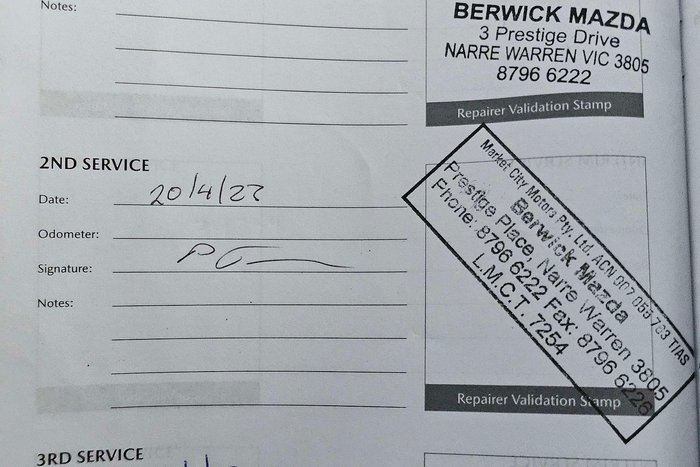 Notes:
BERWICK MAZDA
3 Prestige Drive
NARRE WARREN VIC 3805
8796 6222
Repairer Validation Stamp
2ND SERVICE
Date: 20/4/22
Odometer:
Signature:
Notes:
Market City Motors Pty. Ltd. ACN 007 055 763 T/AS
Berwick Mazda
Prestige Place, Narre Warren 3805
Phone: 8796 6222 Fax: 8796 6226
L.M.C.T. 7254
Repairer Validation Stamp
3RD SERVICE